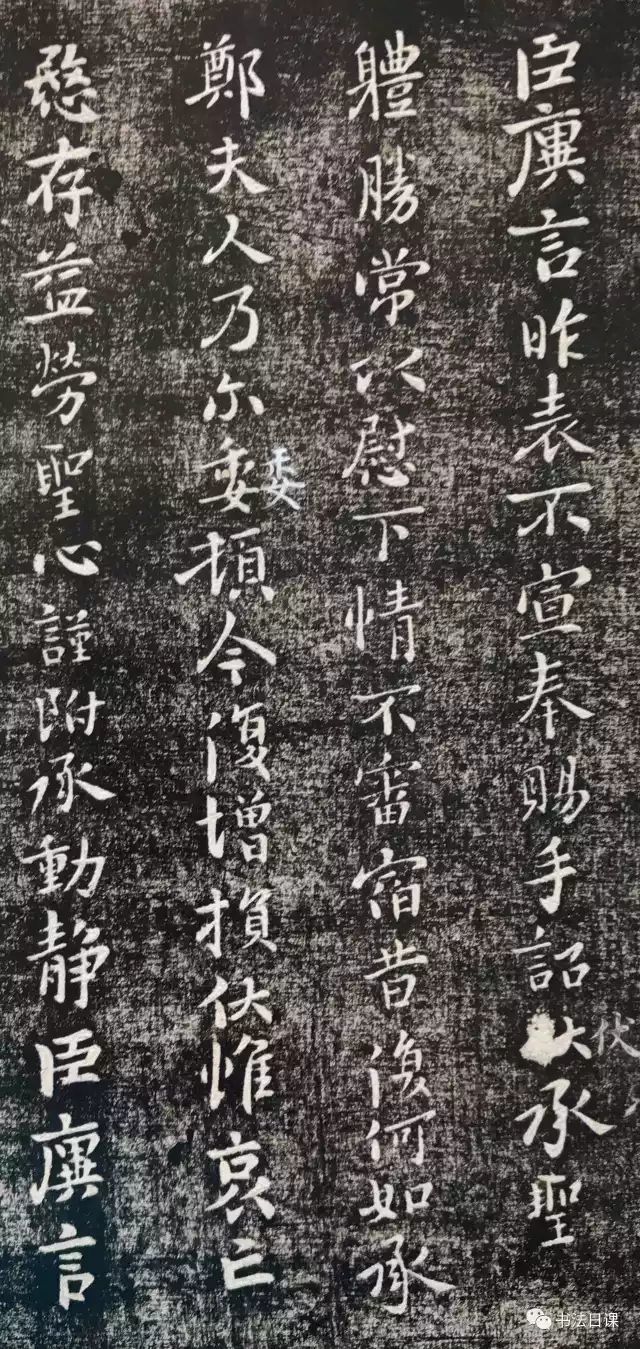 臣廙言昨表不宣奉賜手詔伏承聖
伏
體勝常以慰下情不審宿昔復何如承
鄭夫人乃尔委頓今復增損伏惟哀亡
委
愍存益勞聖心謹附承動静臣廙言
书法日课